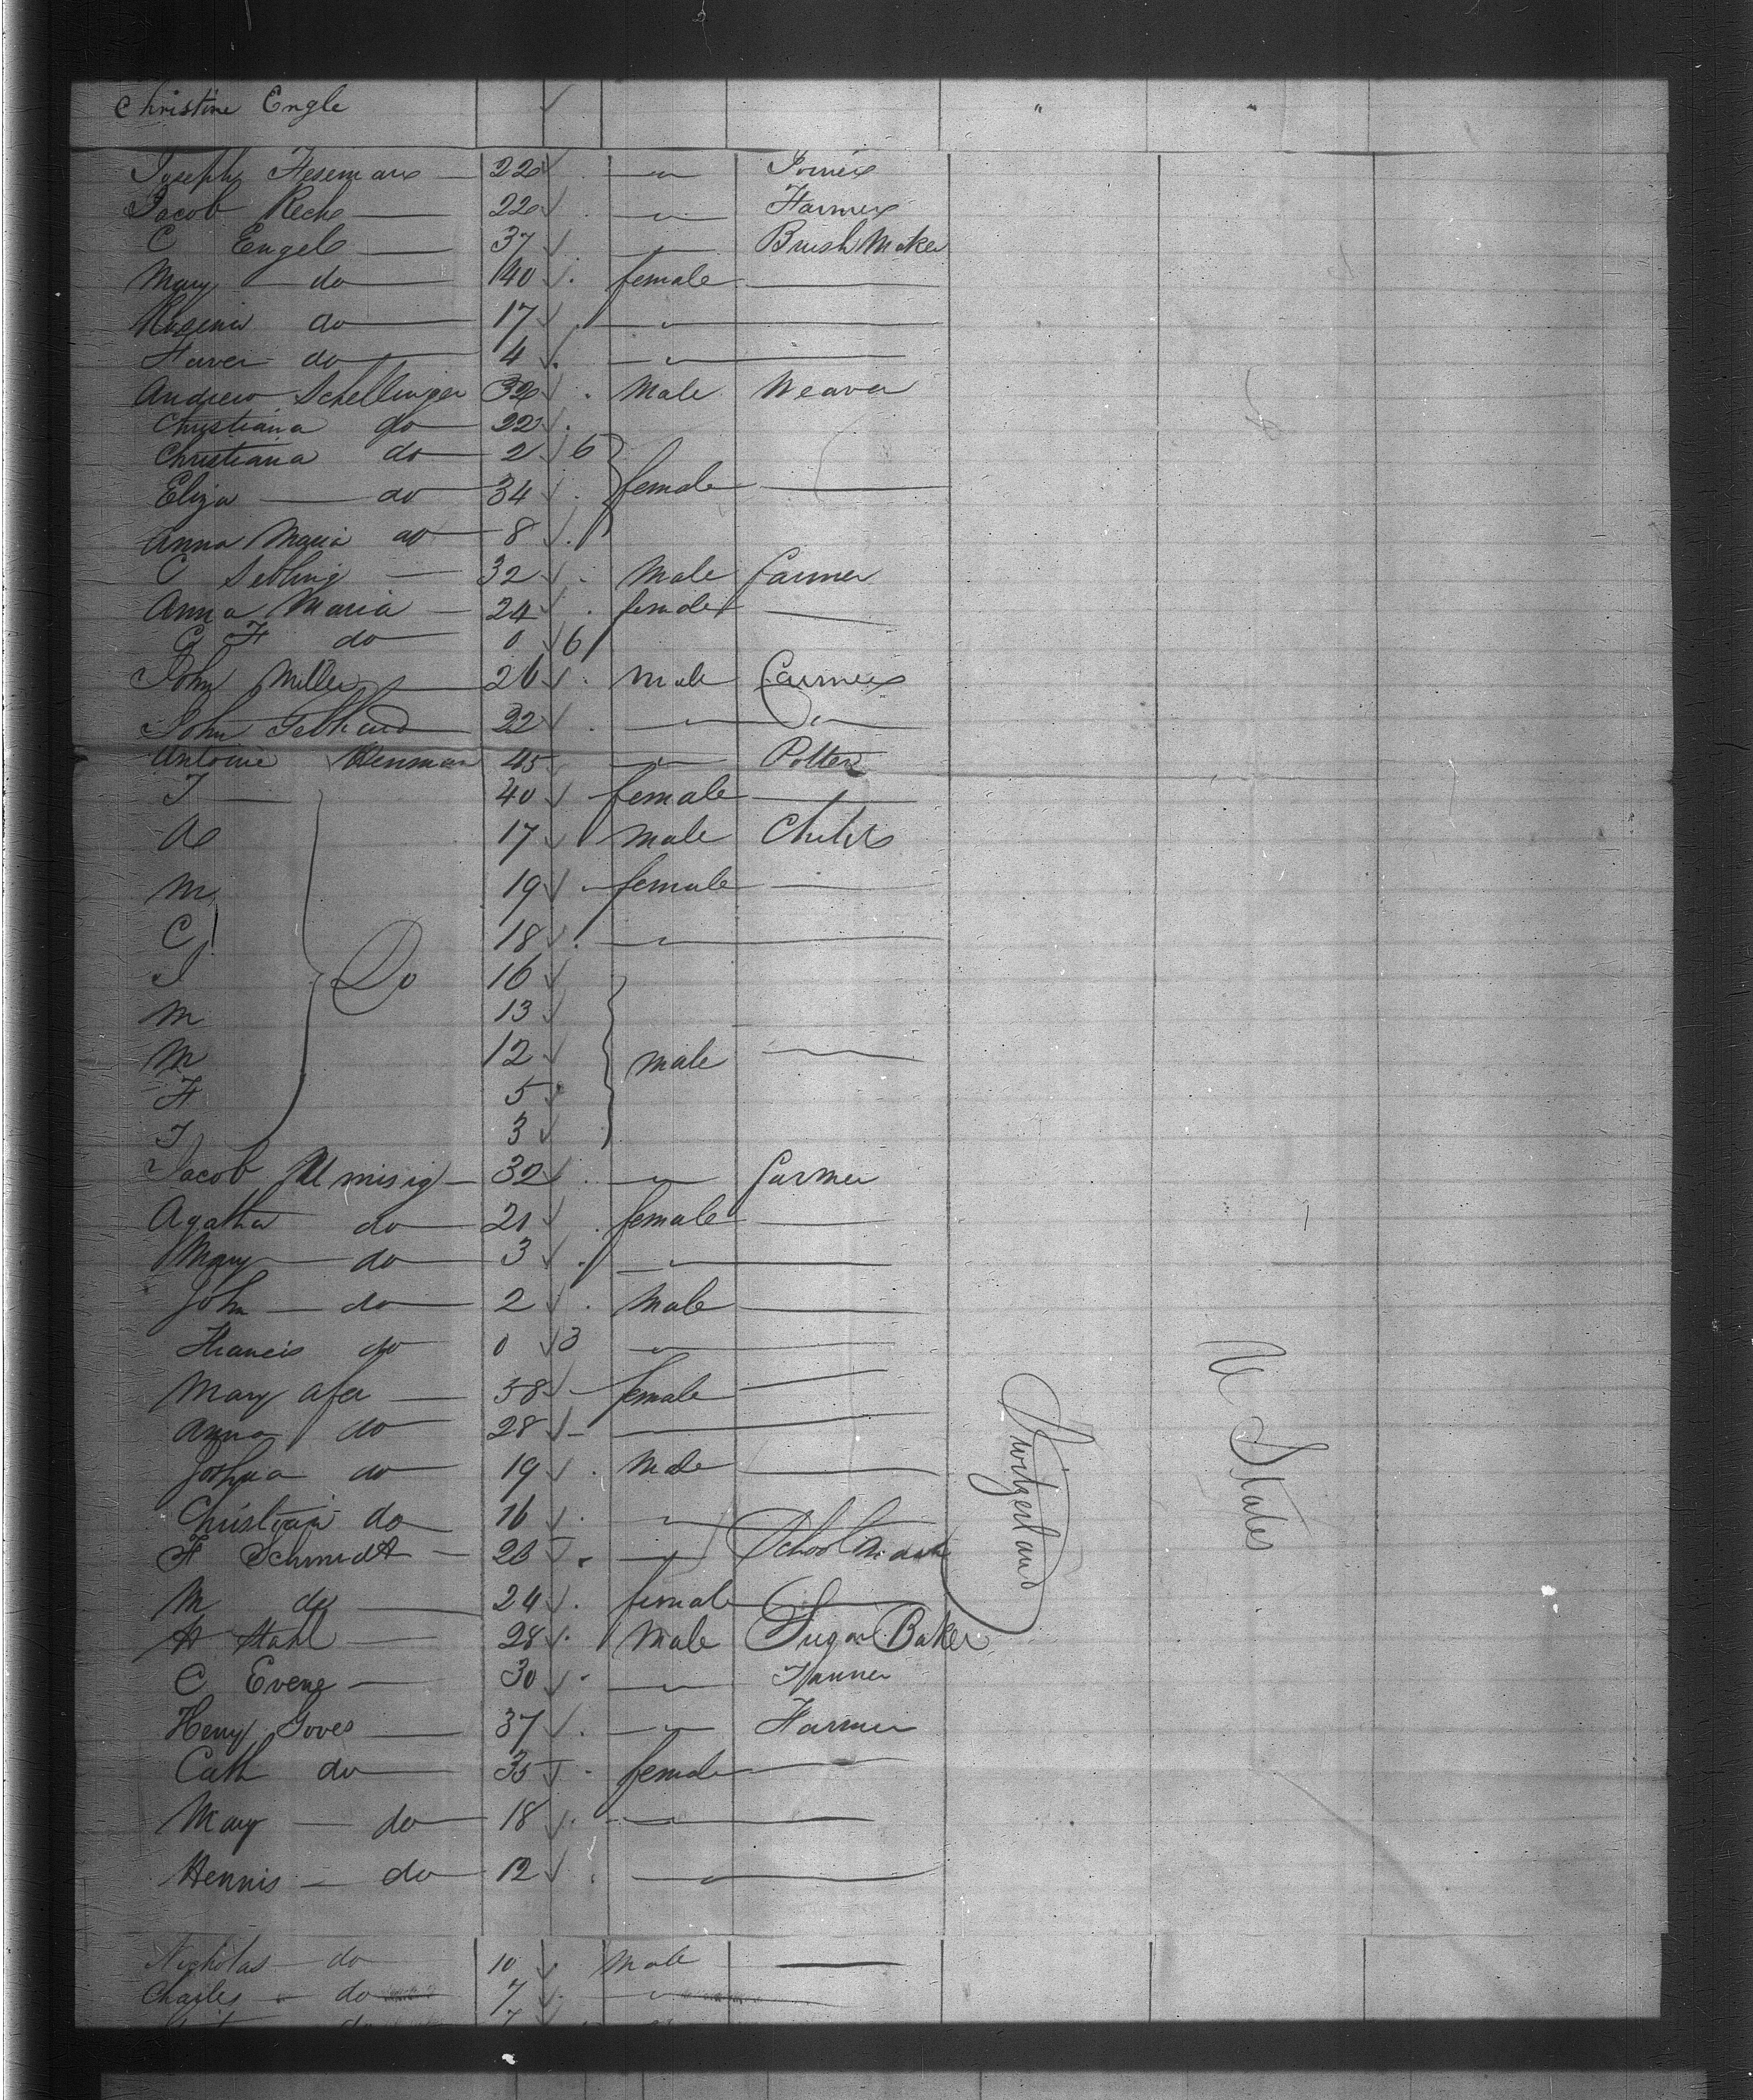 Christine Engle " "
Joseph Hesemann 22 "
Jacob Reche 22 " Farmer
C Engel 37 " Brush Maker
Mary do 40 female
Rosina do 17 "
do 4 "
Andrew Schellinger 32 Male Weaver
Christiana do 22
Christiana do 2 6
Eliza do 34 female
Anna Maria do 8
C Sebling 32 Male farmer
Anna Maria 24 female
C F do 0 6
John Miller 26 male Farmer
John Gebhard 22 " "
Antoine Hensman 45 " Potter
T 40 female
A 17 male
M 19 female
C 18 "
J Do 16
M 13
M 12 male
F 5
T 3
Jacob 32 " farmer
Agatha do 21 female
Mary do 3 "
John do 2 Male
Francis do 0 3 "
Mary Afer 38 female
Anna do 28
Joshua do 19 Male
Christian do 16 "
F Schmidt 25 "
M do 24 female
A Stahl 28 Male Sugar Baker
C Evene 30 " Tanner
Henry Goves 37 " Farmer
Cath do 35 female
Mary do 18 "
Hennis do 12 "
Nicholas do 10 Male
Charles do 7 "
Switzerland
U States